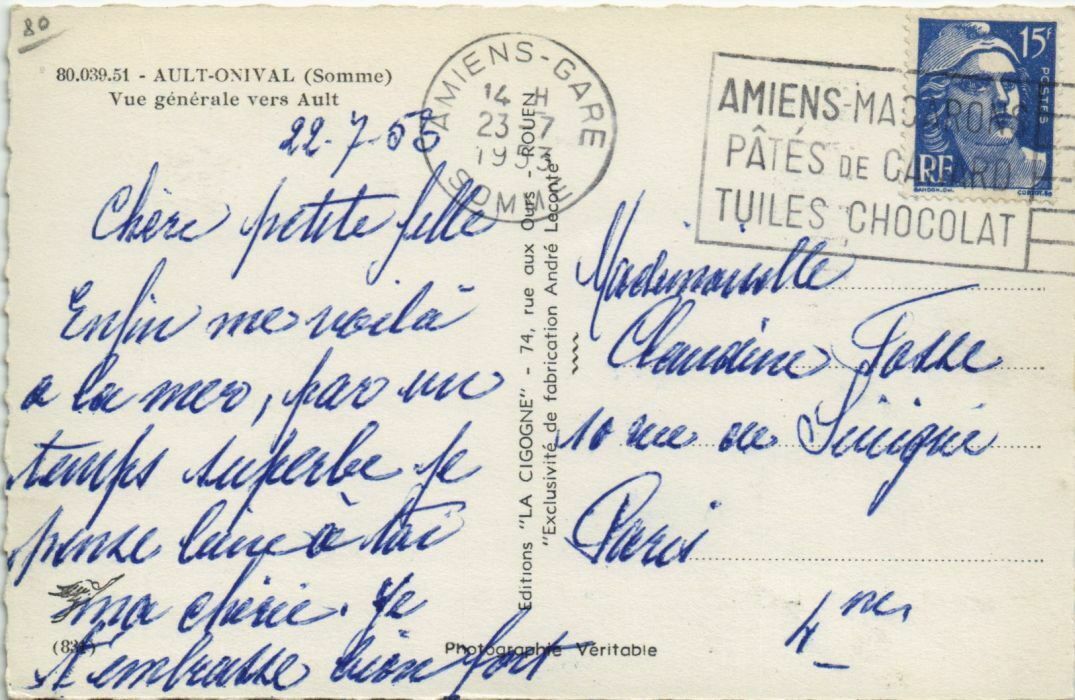 80
80.039.51 - AULT-ONIVAL (Somme)
Vue générale vers Ault
22-7-53
Chère petite fille
Enfin me voilà
a la mer, par un
temps superbe je
pense bien à toi
ma chérie. Je
t'embrasse bien fort
(831)
Photographie Véritable
Editions "LA CIGOGNE" - 74, rue aux Ours - ROUEN
"Exclusivité de fabrication André Leconte"
AMIENS-GARE
14 H
23 - 7
1953
SOMME
AMIENS-MACARONS
PÂTÉS DE CANARD
TUILES CHOCOLAT
15F
POSTES
RF
GANDON.DEL.
Mademoiselle
Claudine Fosse
10 rue de
Paris
4me